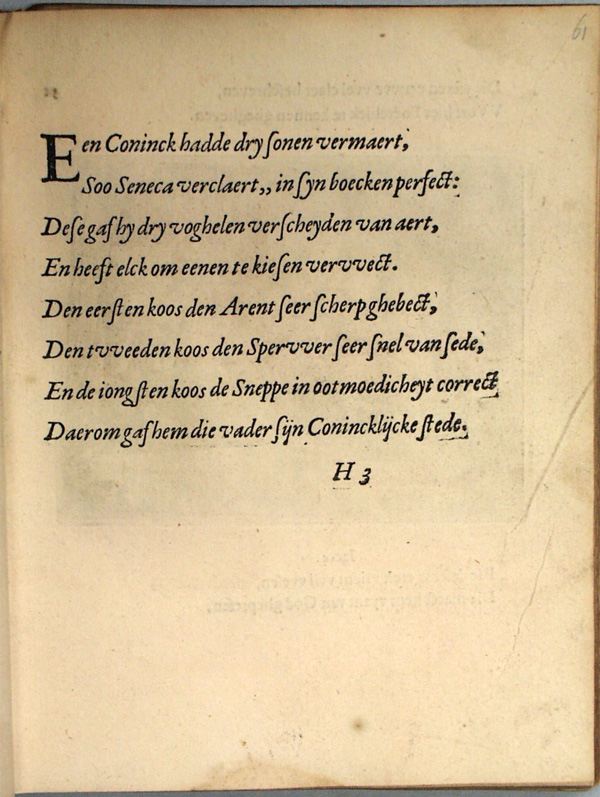 61
Een Coninck hadde dry sonen vermaert,
Soo Seneca verclaert,, in syn boecken perfect:
Dese gaf hy dry voghelen verscheyden van aert,
En heeft elck om eenen te kiesen vervvect.
Den eersten koos den Arent seer scherp ghebect,
Den tvveeden koos den Spervver seer snel van sede,
En de iongsten koos de Sneppe in ootmoedicheyt correct
Daerom gaf hem die vader sijn Conincklijcke stede.
H 3